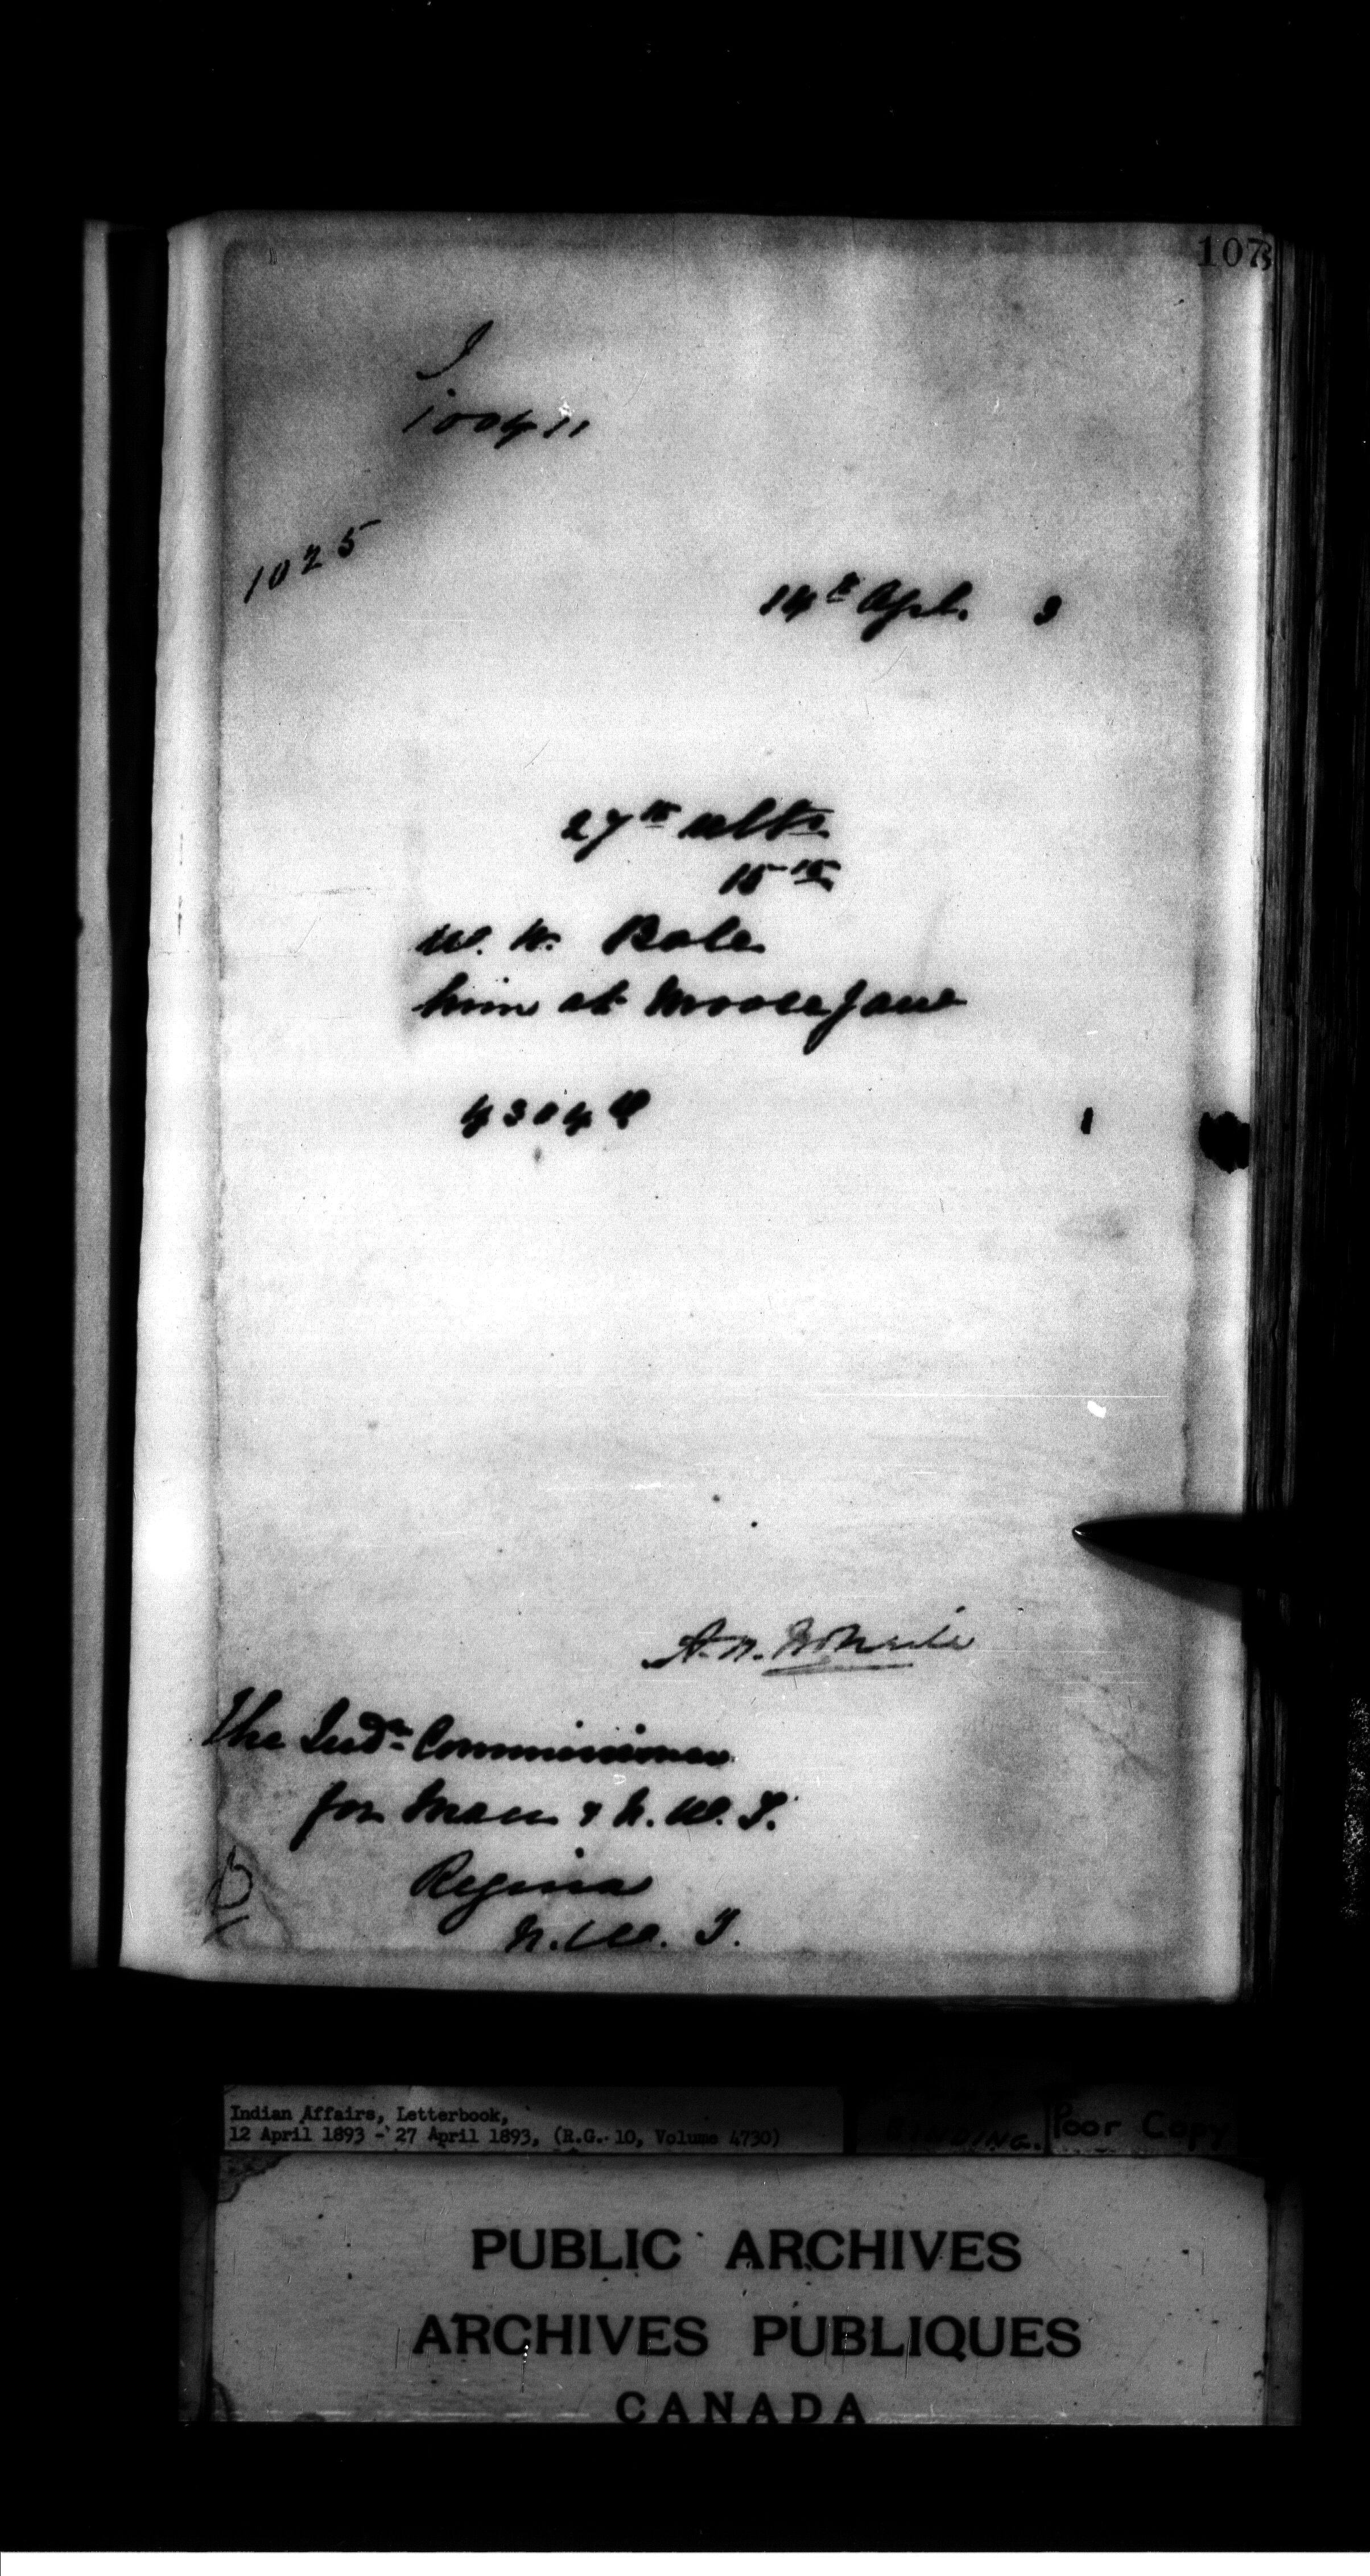 107
I
100411
1025
14th Apl. 3
27th ulto
15th
W. W. Bole
him at Moose Jaw
4304 1
The Indn Commissioner
for Man & N. W. T.
Regina
N. W. T.
Indian Affairs, Letterbook,
12 April 1893 - 27 April 1893, (R.G. 10, Volume 4730)
BINDING.
Poor Copy
PUBLIC ARCHIVES
ARCHIVES PUBLIQUES
CANADA